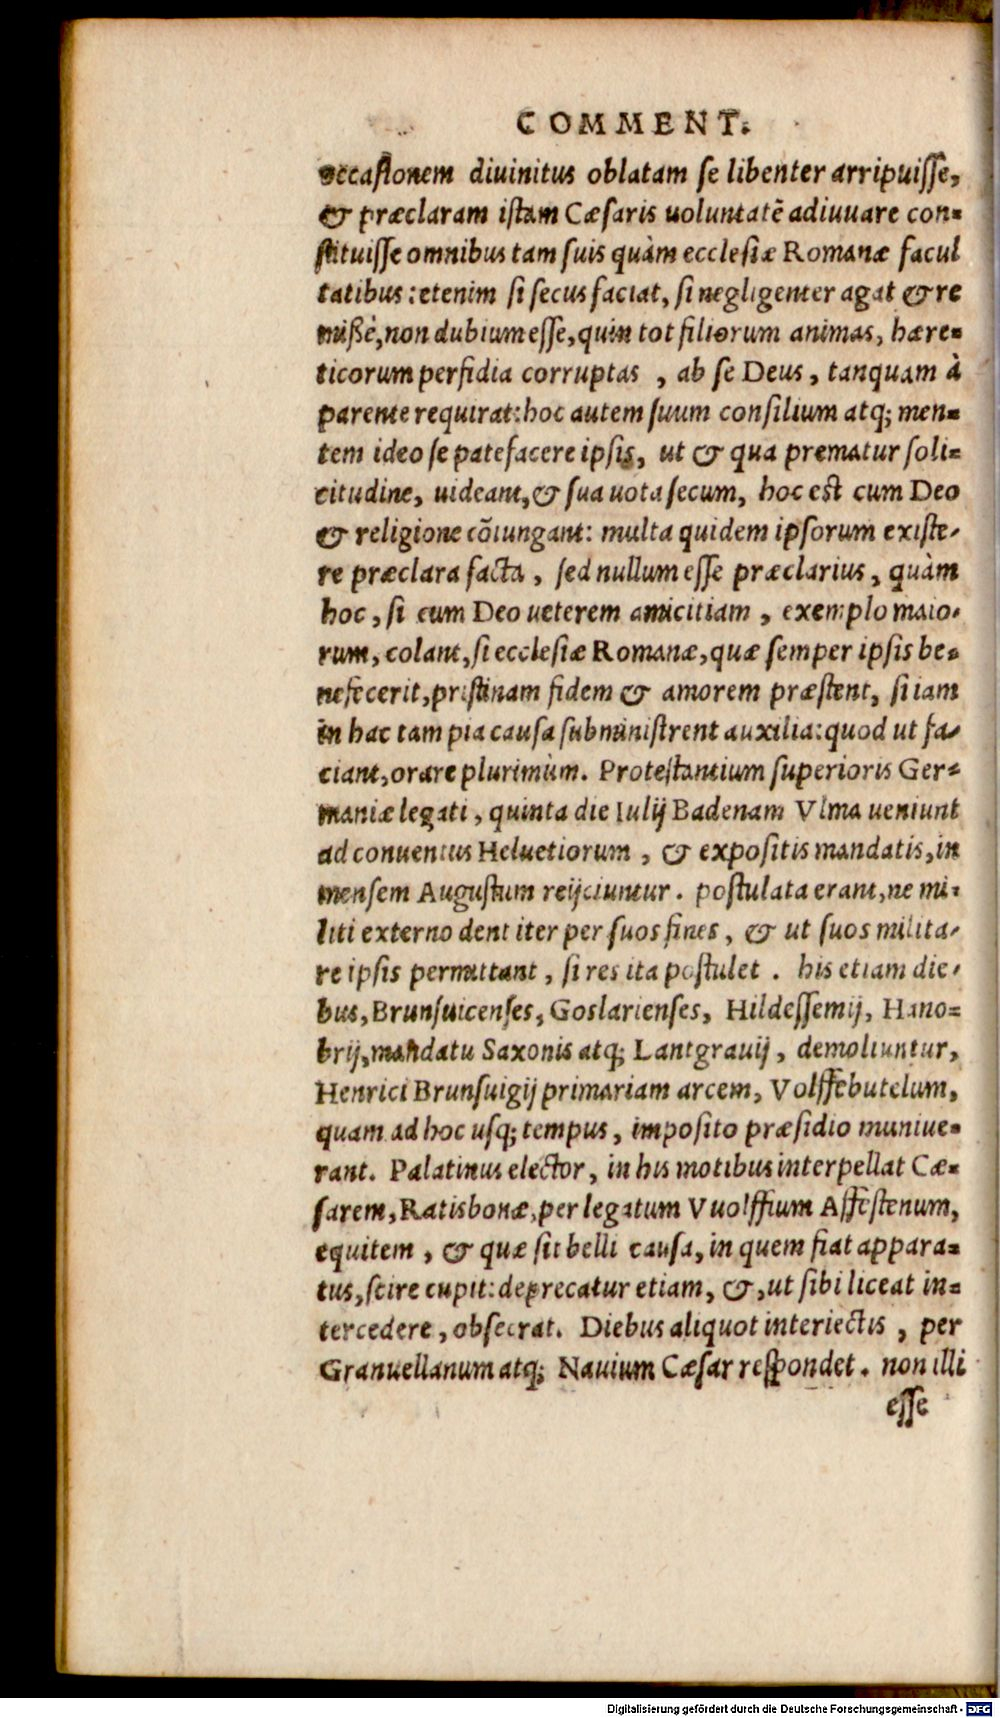 COMMENT.
occasionem diuinitus oblatam se libenter arripuisse,
& præclaram istam Cæsaris uoluntatē adiuuare con-
stituisse omnibus tam suis quàm ecclesiæ Romanæ facul
tatibus: etenim si secus faciat, si negligenter agat & re
mißè, non dubium esse, quin tot filiorum animas, hære-
ticorum perfidia corruptas , ab se Deus, tanquam à
parente requirat: hoc autem suum consilium atq; men-
tem ideo se patefacere ipsis, ut & qua prematur soli-
citudine, uideant, & sua uota secum, hoc est cum Deo
& religione cōiungant: multa quidem ipsorum existe-
re præclara facta , sed nullum esse præclarius, quàm
hoc, si cum Deo ueterem amicitiam , exemplo maio-
rum, colant, si ecclesiæ Romanæ, quæ semper ipsis be-
nefecerit, pristinam fidem & amorem præstent, si iam
in hac tam pia causa subministrent auxilia: quod ut fa-
ciant, orare plurimùm. Protestantium superioris Ger-
maniæ legati, quinta die Iulij Badenam Vlma ueniunt
ad conuentus Heluetiorum , & expositis mandatis, in
mensem Augustum reijciuntur. postulata erant, ne mi-
liti externo dent iter per suos fines, & ut suos milita-
re ipsis permittant, si res ita postulet . his etiam die-
bus, Brunsuicenses, Goslarienses, Hildessemij, Hano-
brij, mandatu Saxonis atq; Lantgrauij, demoliuntur,
Henrici Brunsuigij primariam arcem, Volffebutelum,
quam ad hoc usq; tempus, imposito præsidio muniue-
rant. Palatinus elector, in his motibus interpellat Cæ-
sarem, Ratisbonæ, per legatum Vuolffium Affestenum,
equitem , & quæ sit belli causa, in quem fiat appara-
tus, scire cupit: deprecatur etiam, &, ut sibi liceat in-
tercedere, obsecrat. Diebus aliquot interiectis , per
Granuellanum atq; Nauium Cæsar respondet. non illi
esse
Digitalisierung gefördert durch die Deutsche Forschungsgemeinschaft - DFG